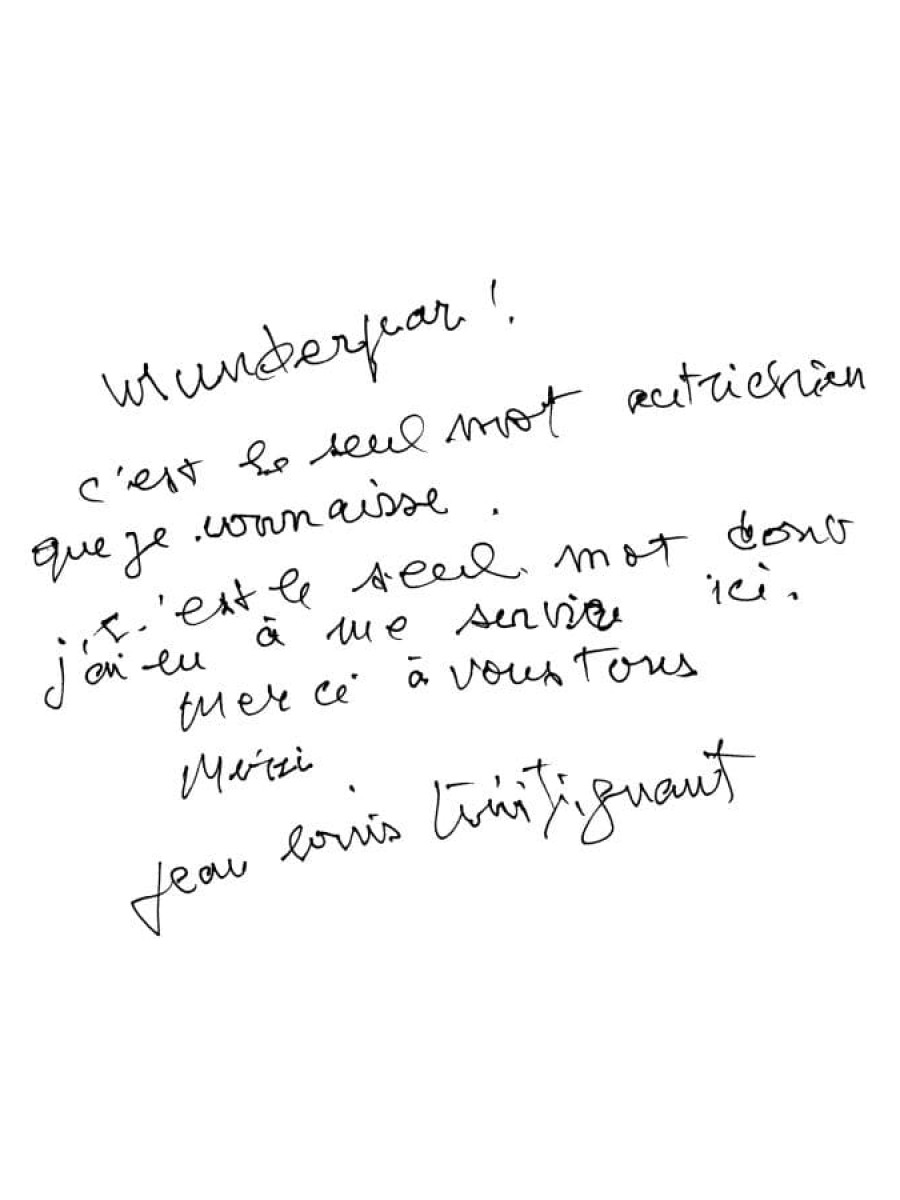 wunderpar !
c'est le seul mot autrichien
que je connaisse .
c'est le seul mot dont
j'ai eu à me servir ici.
merci à vous tous
Merci
Jean Louis Trintignant